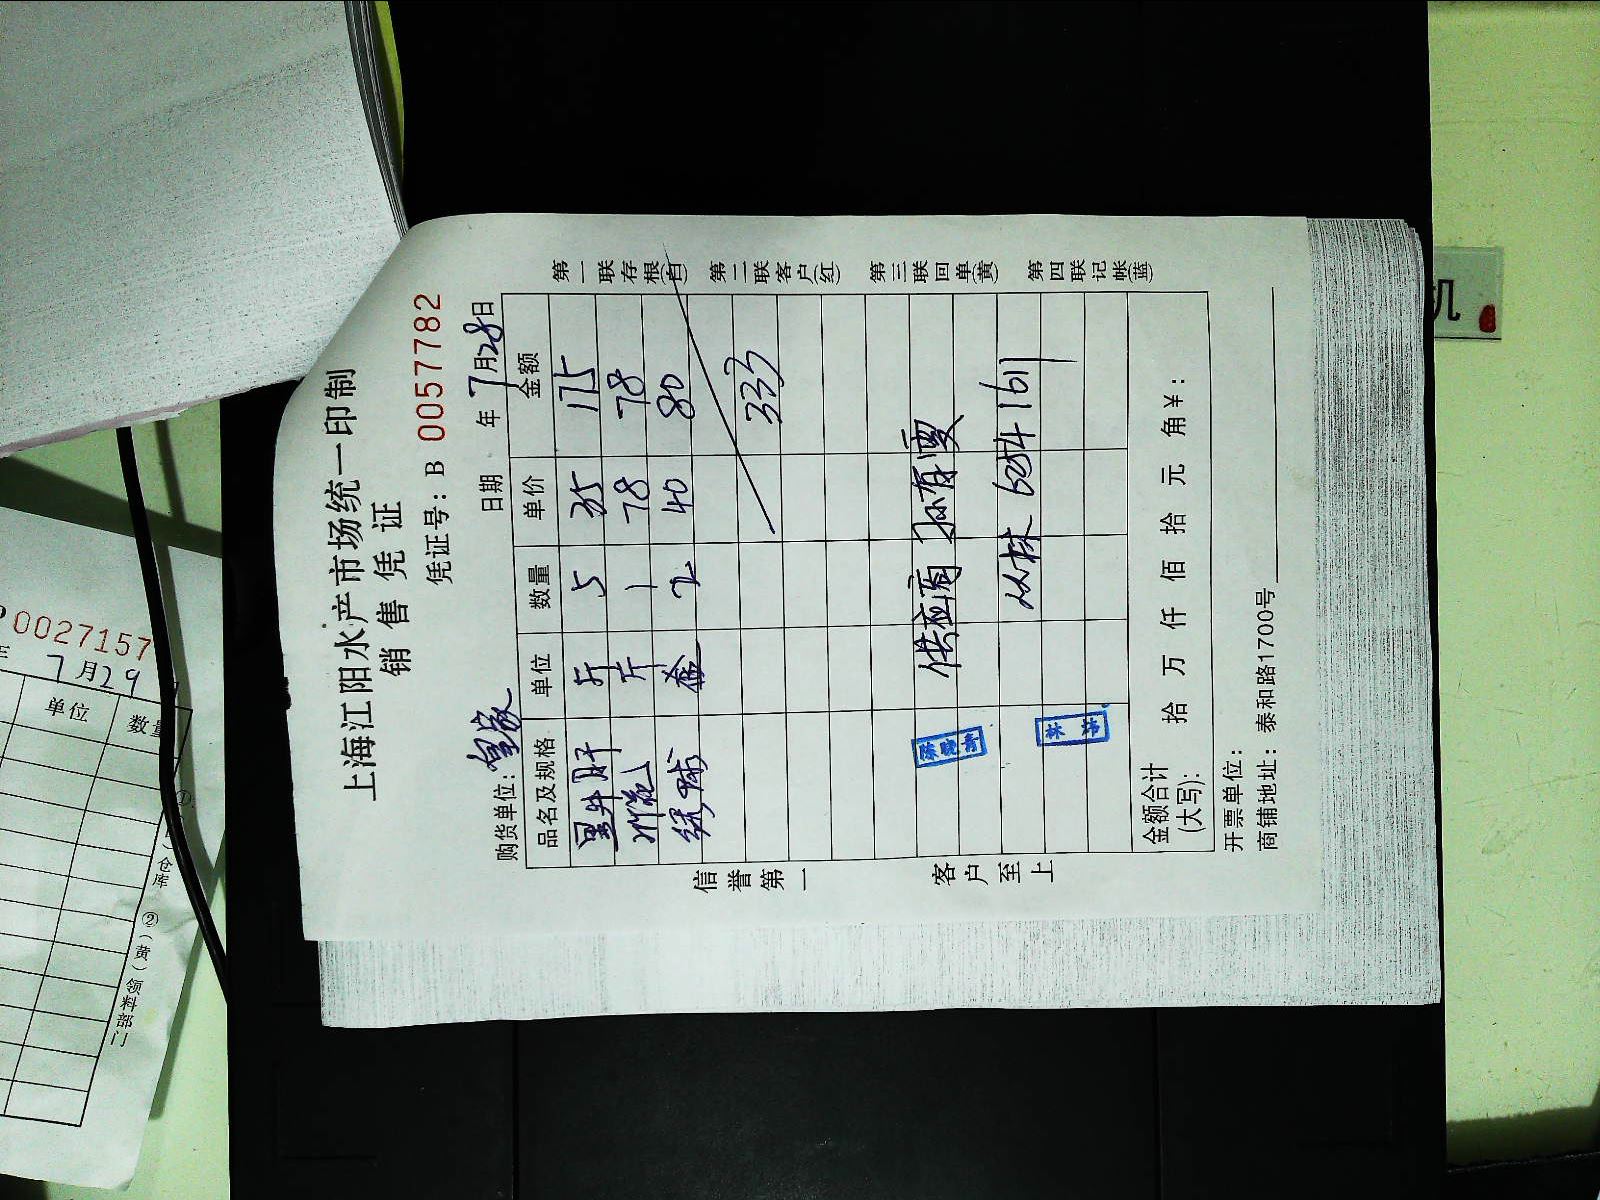 上海江阳水产市场统一印制
销售凭证
凭证号: B 0057782
购货单位: 日期 年 7月28日
品名及规格 单位 数量 单价 金额
斤 5 35 175
斤 1 78 78
2 40 80
333
供应商
6054 1611
陈晓青
林
金额合计
(大写): 拾 万 仟 佰 拾 元 角 ¥:
开票单位:
商铺地址: 泰和路1700号
信誉第一 客户至上
第一联存根(白) 第二联客户(红) 第三联回单(黄) 第四联记帐(蓝)
0027157
7月29
单位 数量
仓库 ②(黄)领料部门
机